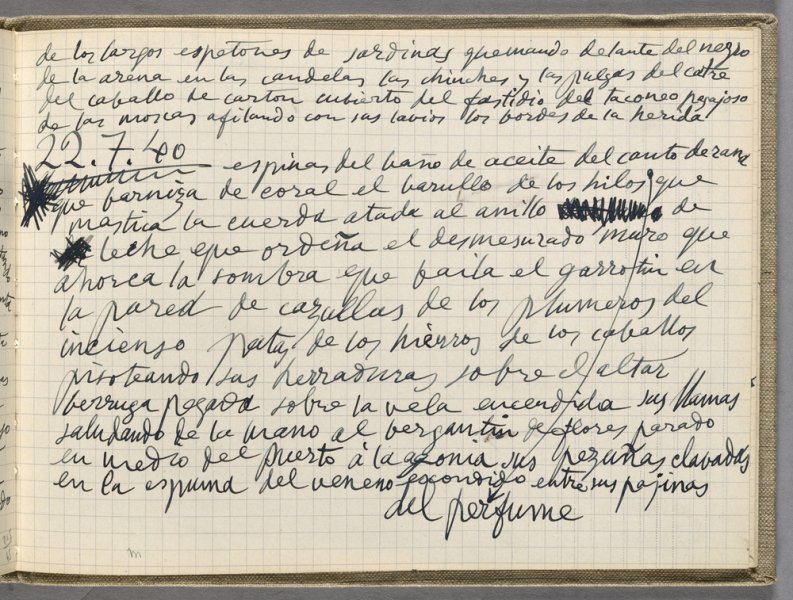 de los largos espetones de sardinas quemando delante del negro
de la arena en las candelas las chinches y las pulgas del catre
del caballo de carton cubierto del fastidio del taconeo pegajoso
de las moscas afilando con sus labios los bordes de la herida
22.7.40
espinas del baño de aceite del canto de rana
que barniza de coral el barullo de los hilos que
mastica la cuerda atada al anillo de
leche que ordeña el desmesurado muro que
ahorca la sombra que baila el garrotin en
la pared de cazuelas de los plumeros del
incienso patas de los hierros de los caballos
pisoteando sus herraduras sobre el altar
berruga pegada sobre la vela encendida sus llamas
saludando de la mano al bergantin de flores parado
en medio del puerto á la agonia sus pezuñas clavadas
en la espuma del veneno escondido entre sus pajinas
del perfume